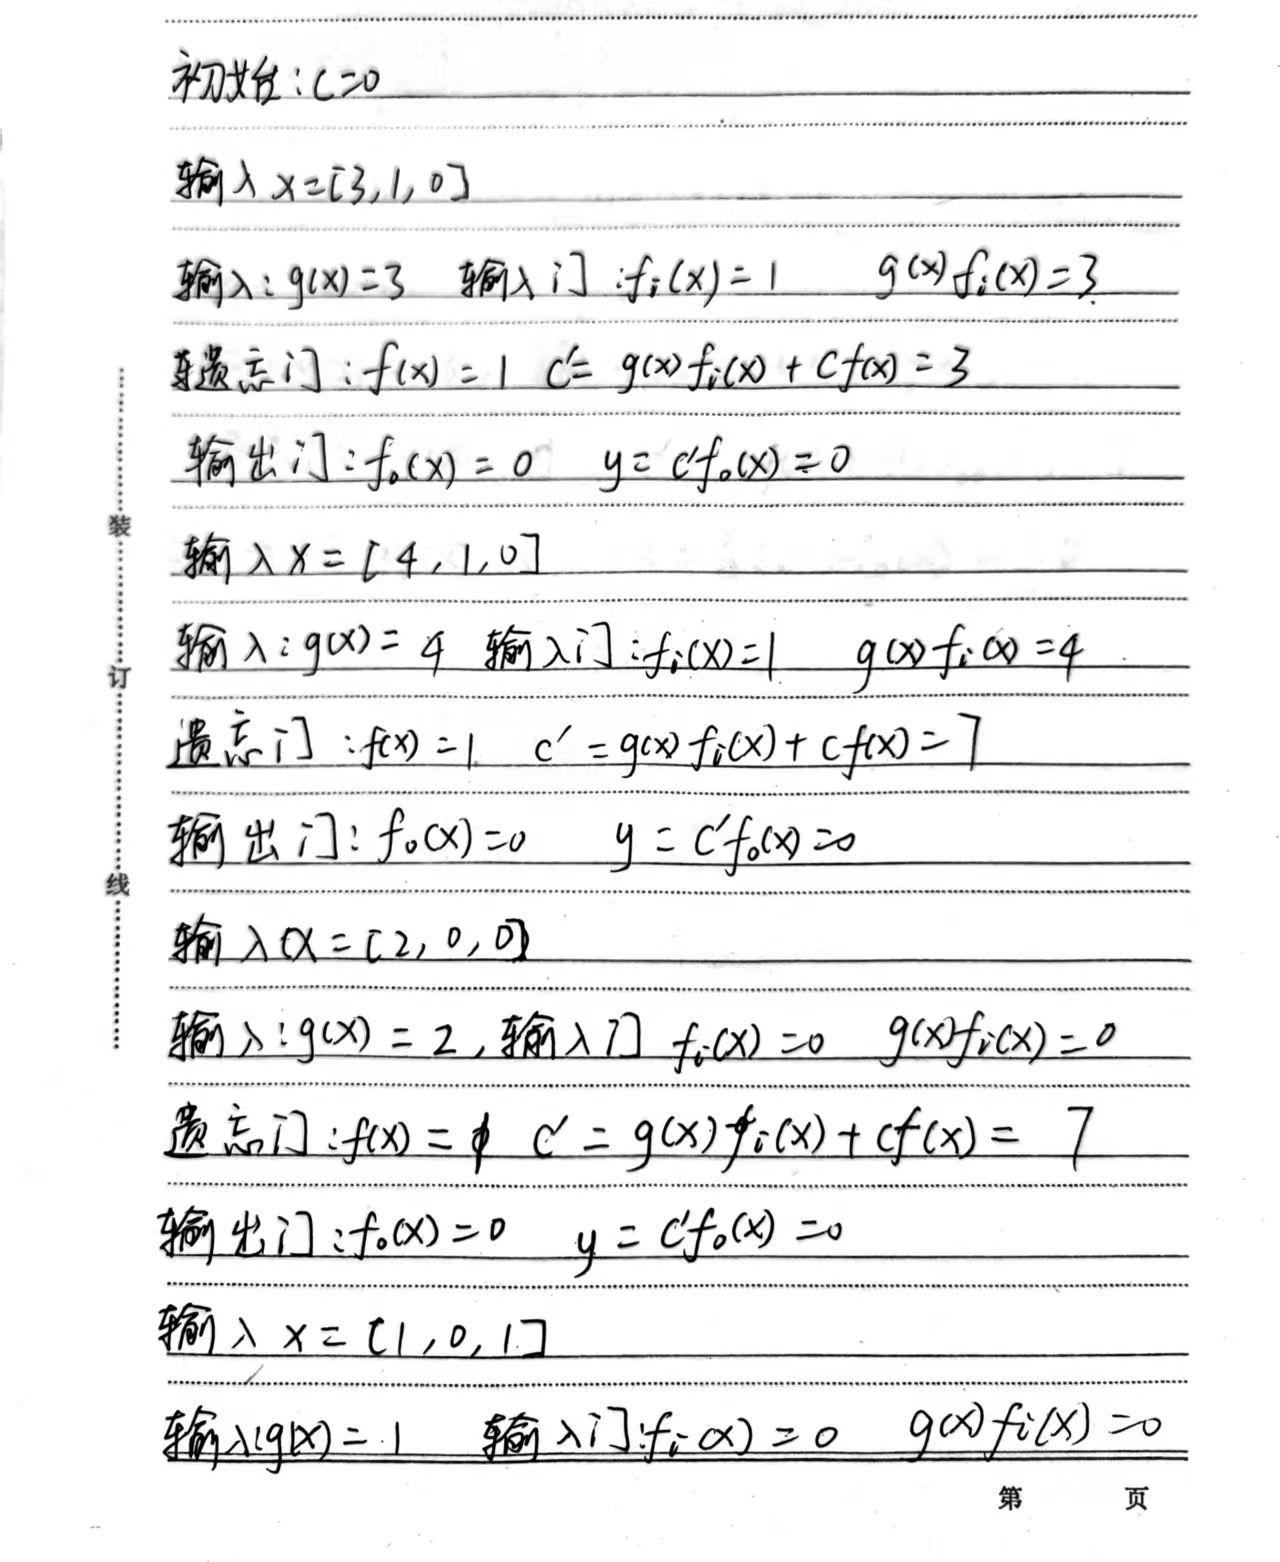 初始:c=0
输入 x=[3,1,0]
输入:g(x)=3 输入门:fᵢ(x)=1 g(x)fᵢ(x)=3
遗忘门:f(x)=1 c'=g(x)fᵢ(x)+cf(x)=3
输出门:f₀(x)=0 y=c'f₀(x)=0
输入x=[4,1,0]
输入:g(x)=4 输入门:fᵢ(x)=1 g(x)fᵢ(x)=4
遗忘门:f(x)=1 c'=g(x)fᵢ(x)+cf(x)=7
输出门:f₀(x)=0 y=c'f₀(x)=0
输入x=[2,0,0]
输入:g(x)=2,输入门 fᵢ(x)=0 g(x)fᵢ(x)=0
遗忘门:f(x)=1 c'=g(x)fᵢ(x)+cf(x)=7
输出门:f₀(x)=0 y=c'f₀(x)=0
输入x=[1,0,1]
输入:g(x)=1 输入门:fᵢ(x)=0 g(x)fᵢ(x)=0
装
订
线
第 页